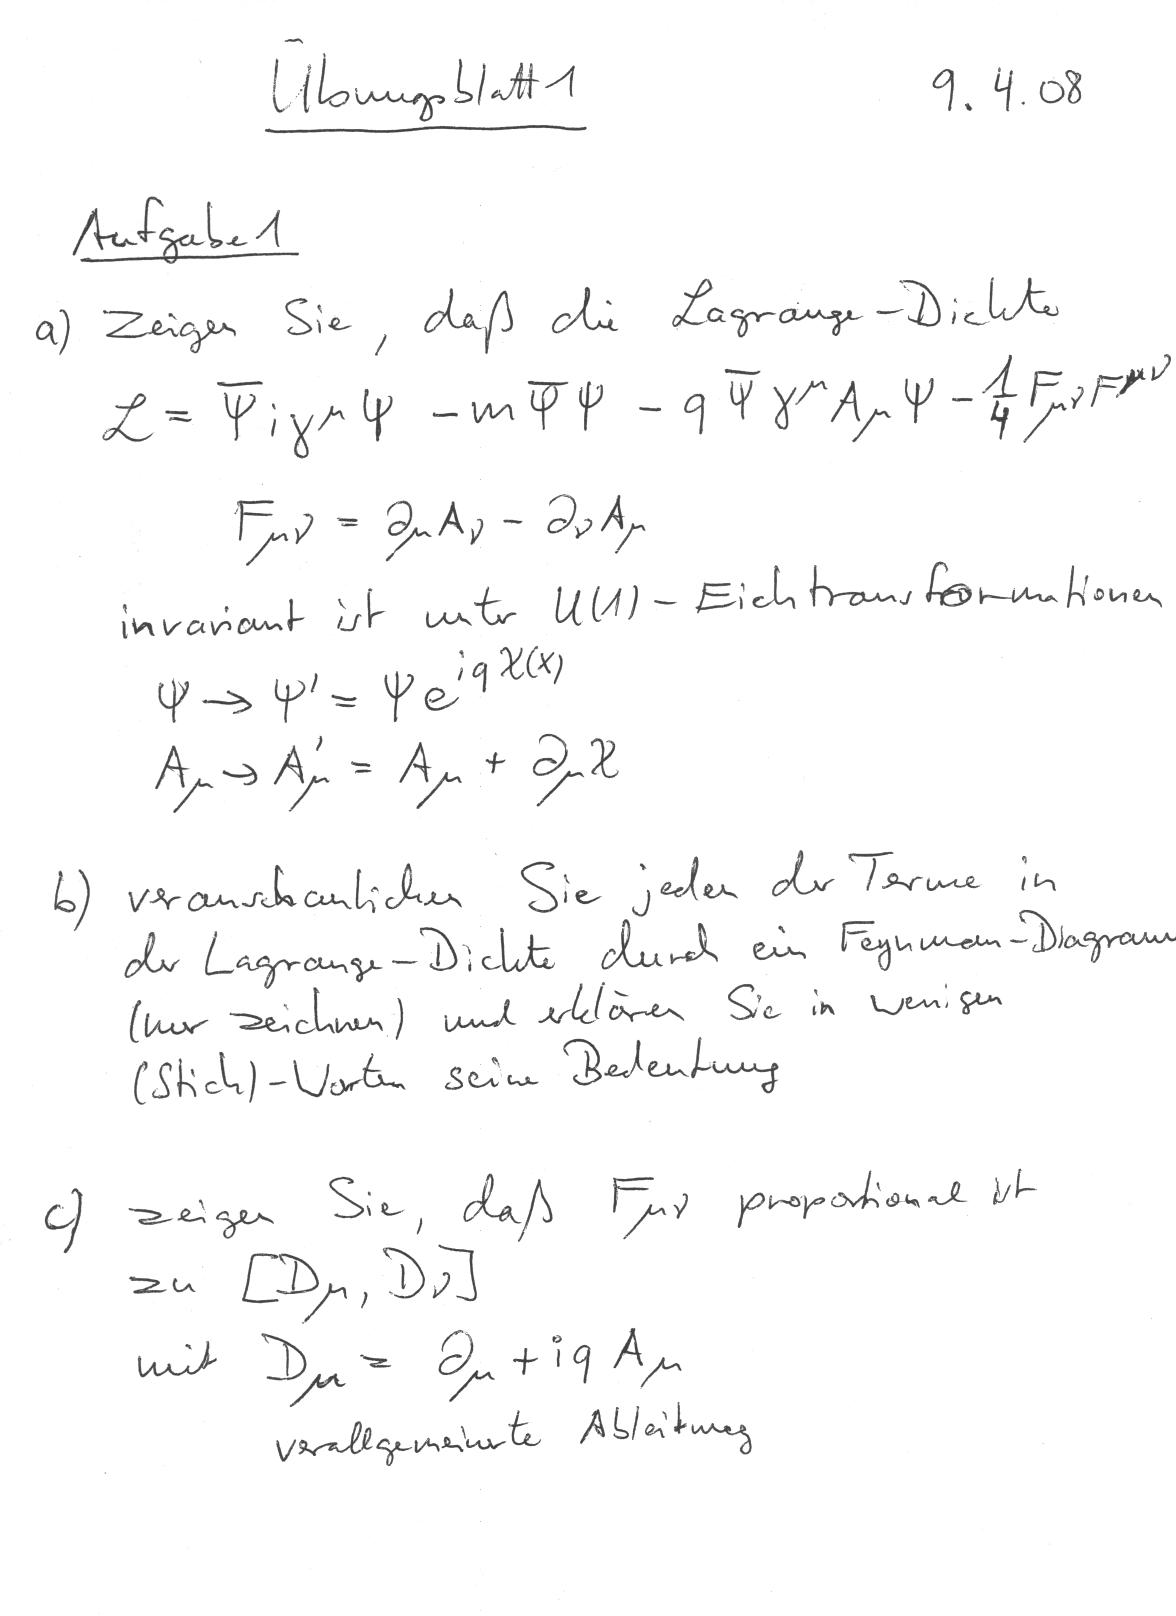 Übungsblatt 1 9.4.08
Aufgabe 1
a) zeigen Sie, daß die Lagrange-Dichte
ℒ = Ψ̅ i γ^μ Ψ - m Ψ̅ Ψ - q Ψ̅ γ^μ A_μ Ψ - 1/4 F_μν F^μν
F_μν = ∂_μ A_ν - ∂_ν A_μ
invariant ist unter U(1)-Eichtransformationen
Ψ → Ψ' = Ψ e^{iqχ(x)}
A_μ → A_μ' = A_μ + ∂_μ χ
b) veranschaulichen Sie jeden der Terme in
der Lagrange-Dichte durch ein Feynman-Diagramm
(nur zeichnen) und erklären Sie in wenigen
(Stich)-Worten seine Bedeutung
c) zeigen Sie, daß F_μν proportional ist
zu [D_μ, D_ν]
mit D_μ = ∂_μ + iq A_μ
verallgemeinerte Ableitung